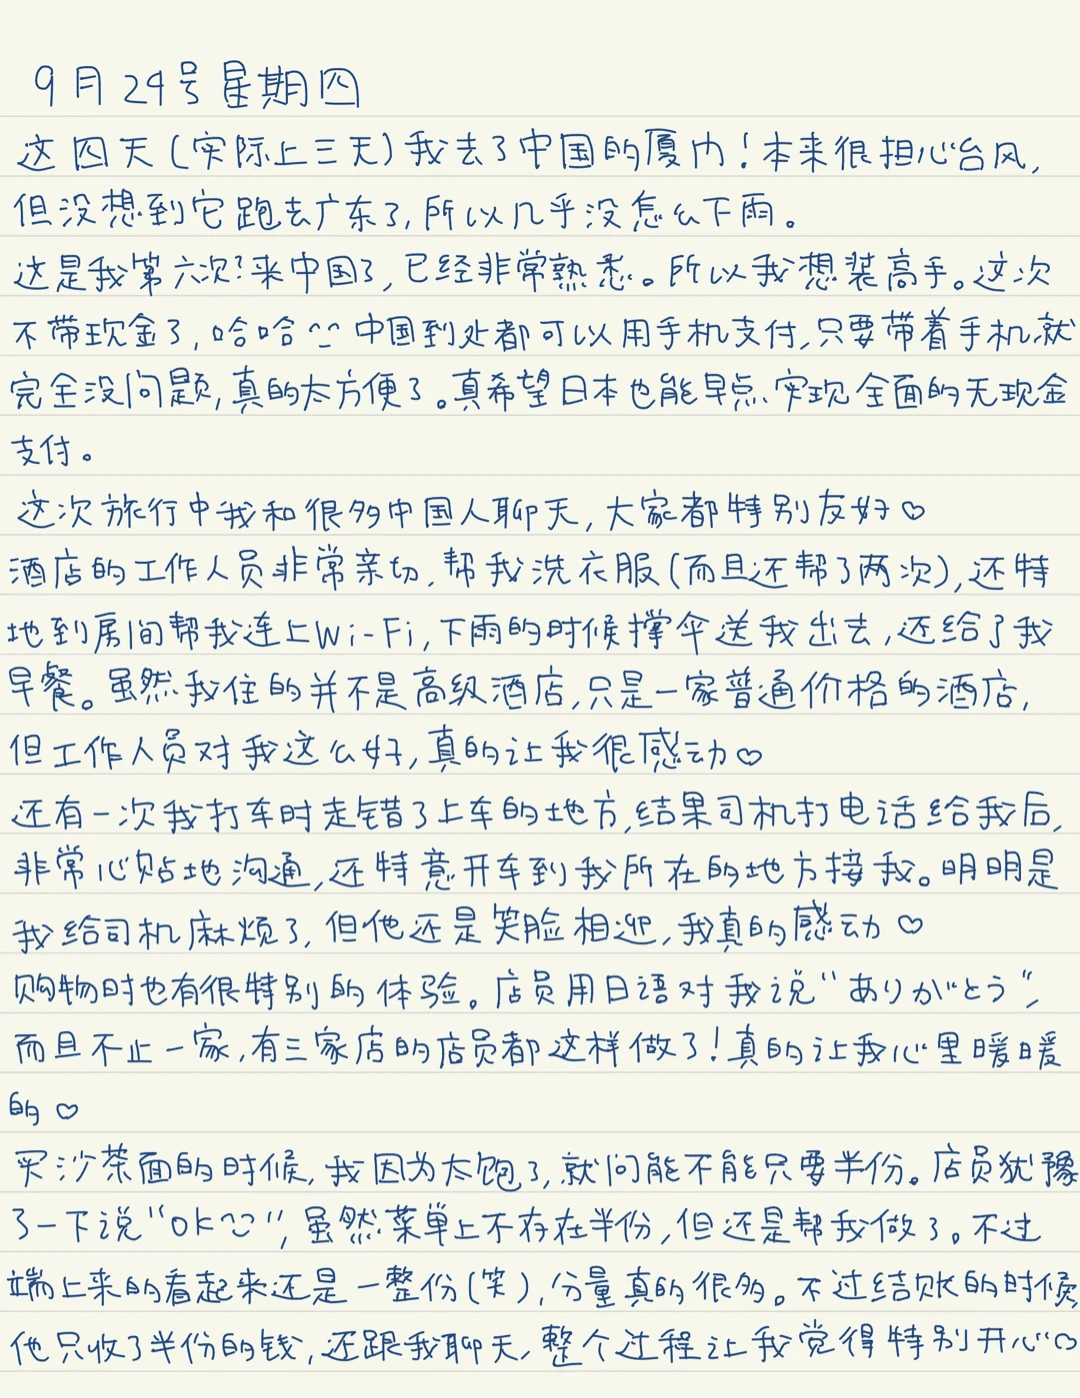 9月24号星期四
这四天(实际上三天)我去了中国的厦门!本来很担心台风,
但没想到它跑去广东了,所以几乎没怎么下雨。
这是我第六次?来中国了,已经非常熟悉。所以我想装高手。这次
不带现金了,哈哈^^ 中国到处都可以用手机支付,只要带着手机就
完全没问题,真的太方便了。真希望日本也能早点实现全面的无现金
支付。
这次旅行中我和很多中国人聊天,大家都特别友好♡
酒店的工作人员非常亲切,帮我洗衣服(而且还帮了两次),还特
地到房间帮我连上Wi-Fi,下雨的时候撑伞送我出去,还给了我
早餐。虽然我住的并不是高级酒店,只是一家普通价格的酒店,
但工作人员对我这么好,真的让我很感动♡
还有一次我打车时走错了上车的地方,结果司机打电话给我后,
非常心贴地沟通,还特意开车到我所在的地方接我。明明是
我给司机麻烦了,但他还是笑脸相迎,我真的感动♡
购物时也有很特别的体验。店员用日语对我说“ありがとう”,
而且不止一家,有三家店的店员都这样做了!真的让我心里暖暖
的♡
买沙茶面的时候,我因为太饱了,就问能不能只要半份。店员犹豫
了一下说“OK^^”,虽然菜单上不存在半份,但还是帮我做了。不过
端上来的看起来还是一整份(笑),分量真的很多。不过结账的时候
他只收了半份的钱,还跟我聊天,整个过程让我觉得特别开心♡